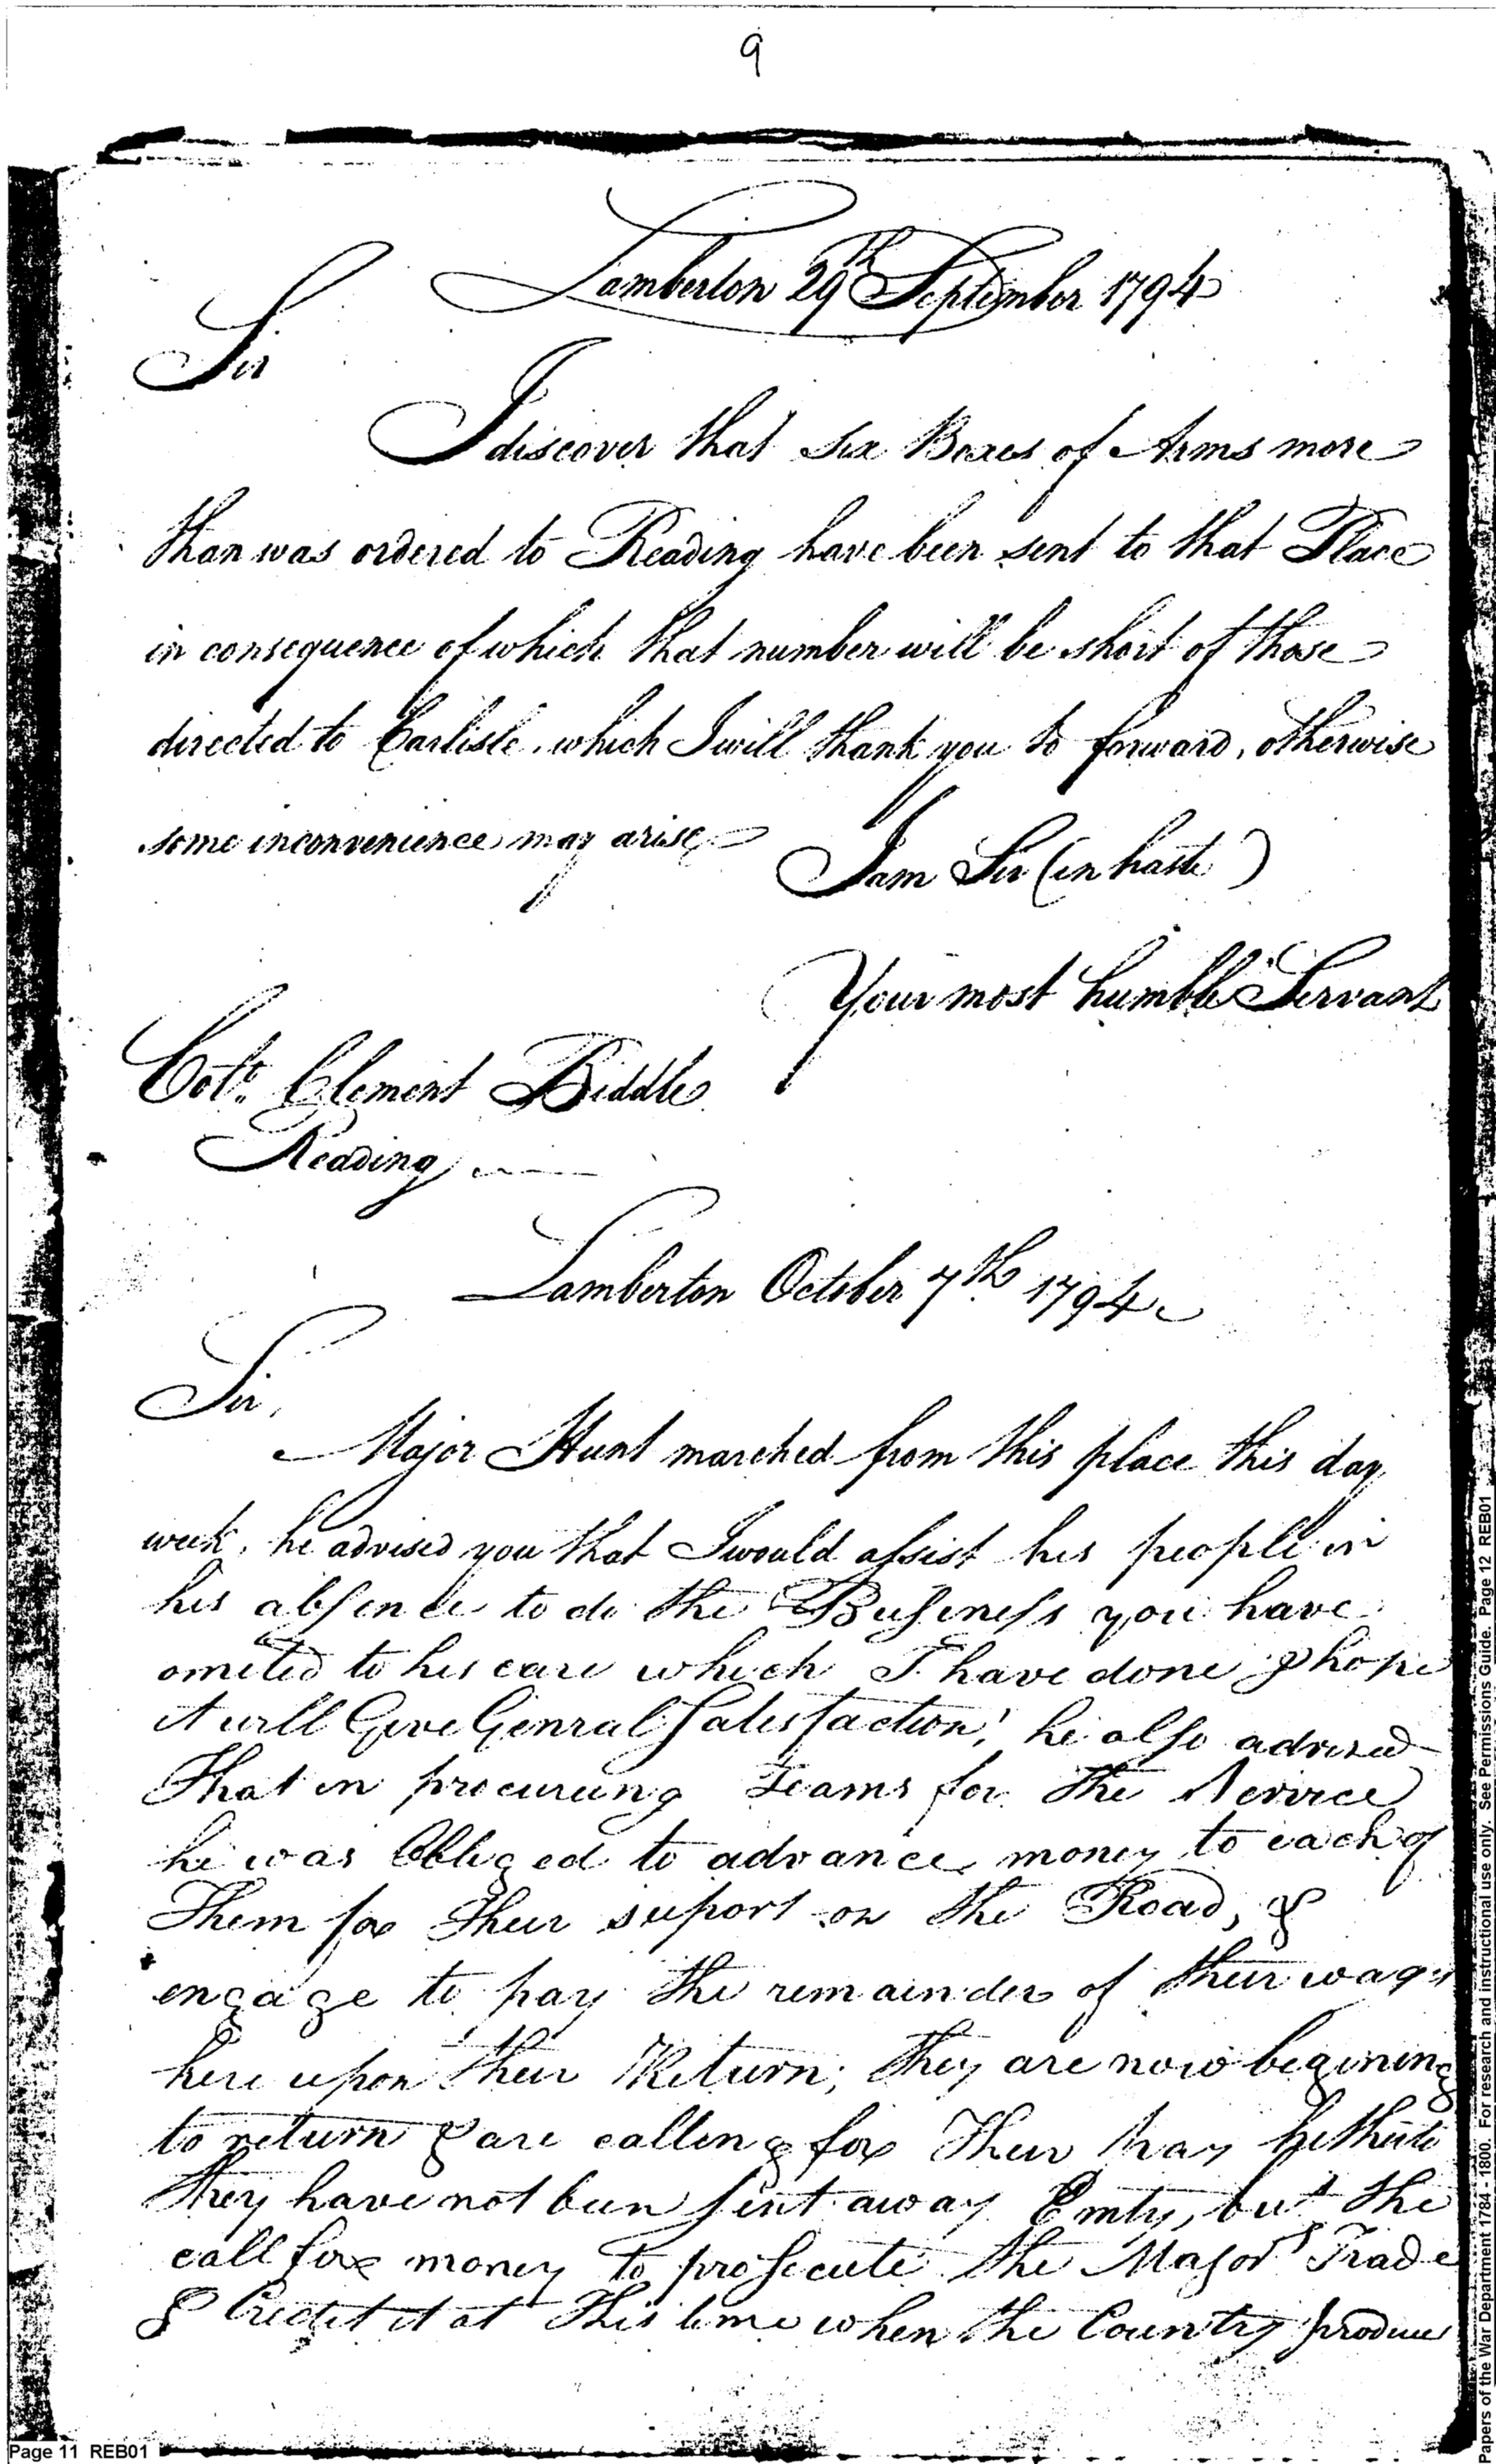 9
Lamberton 29th September 1794
Sir
I discover that six Boxes of Arms more
than was ordered to Reading have been sent to that Place
in consequence of which that number will be short of those
directed to Carlisle, which I will thank you to forward, otherwise
some inconvenience may arise
I am Sir (in haste)
Your most humble Servant
Clement Biddle
Reading
Lamberton October 7th 1794
Sir,
Major Hunt marched from this place this day
week, he advised you that I would assist his people in
his absence to do the Business you have
omited to his care which I have done & hope
it will Give Genral Satisfaction, he also advised
That in procureing Teams for the Service
he was Obliged to advance money to each of
Them for Their suport on the Road, &
engage to pay the remainder of their wages
here upon their Return; they are now begining
to return & are calling for Their pay hitherto
they have not been sent away Emty, but the
call for money to prosecute the Majors Trade
& Credit it at This time when the Country produce
Page 11 REB01
Papers of the War Department 1784 - 1800. For research and instructional use only. See Permissions Guide. Page 12 REB01